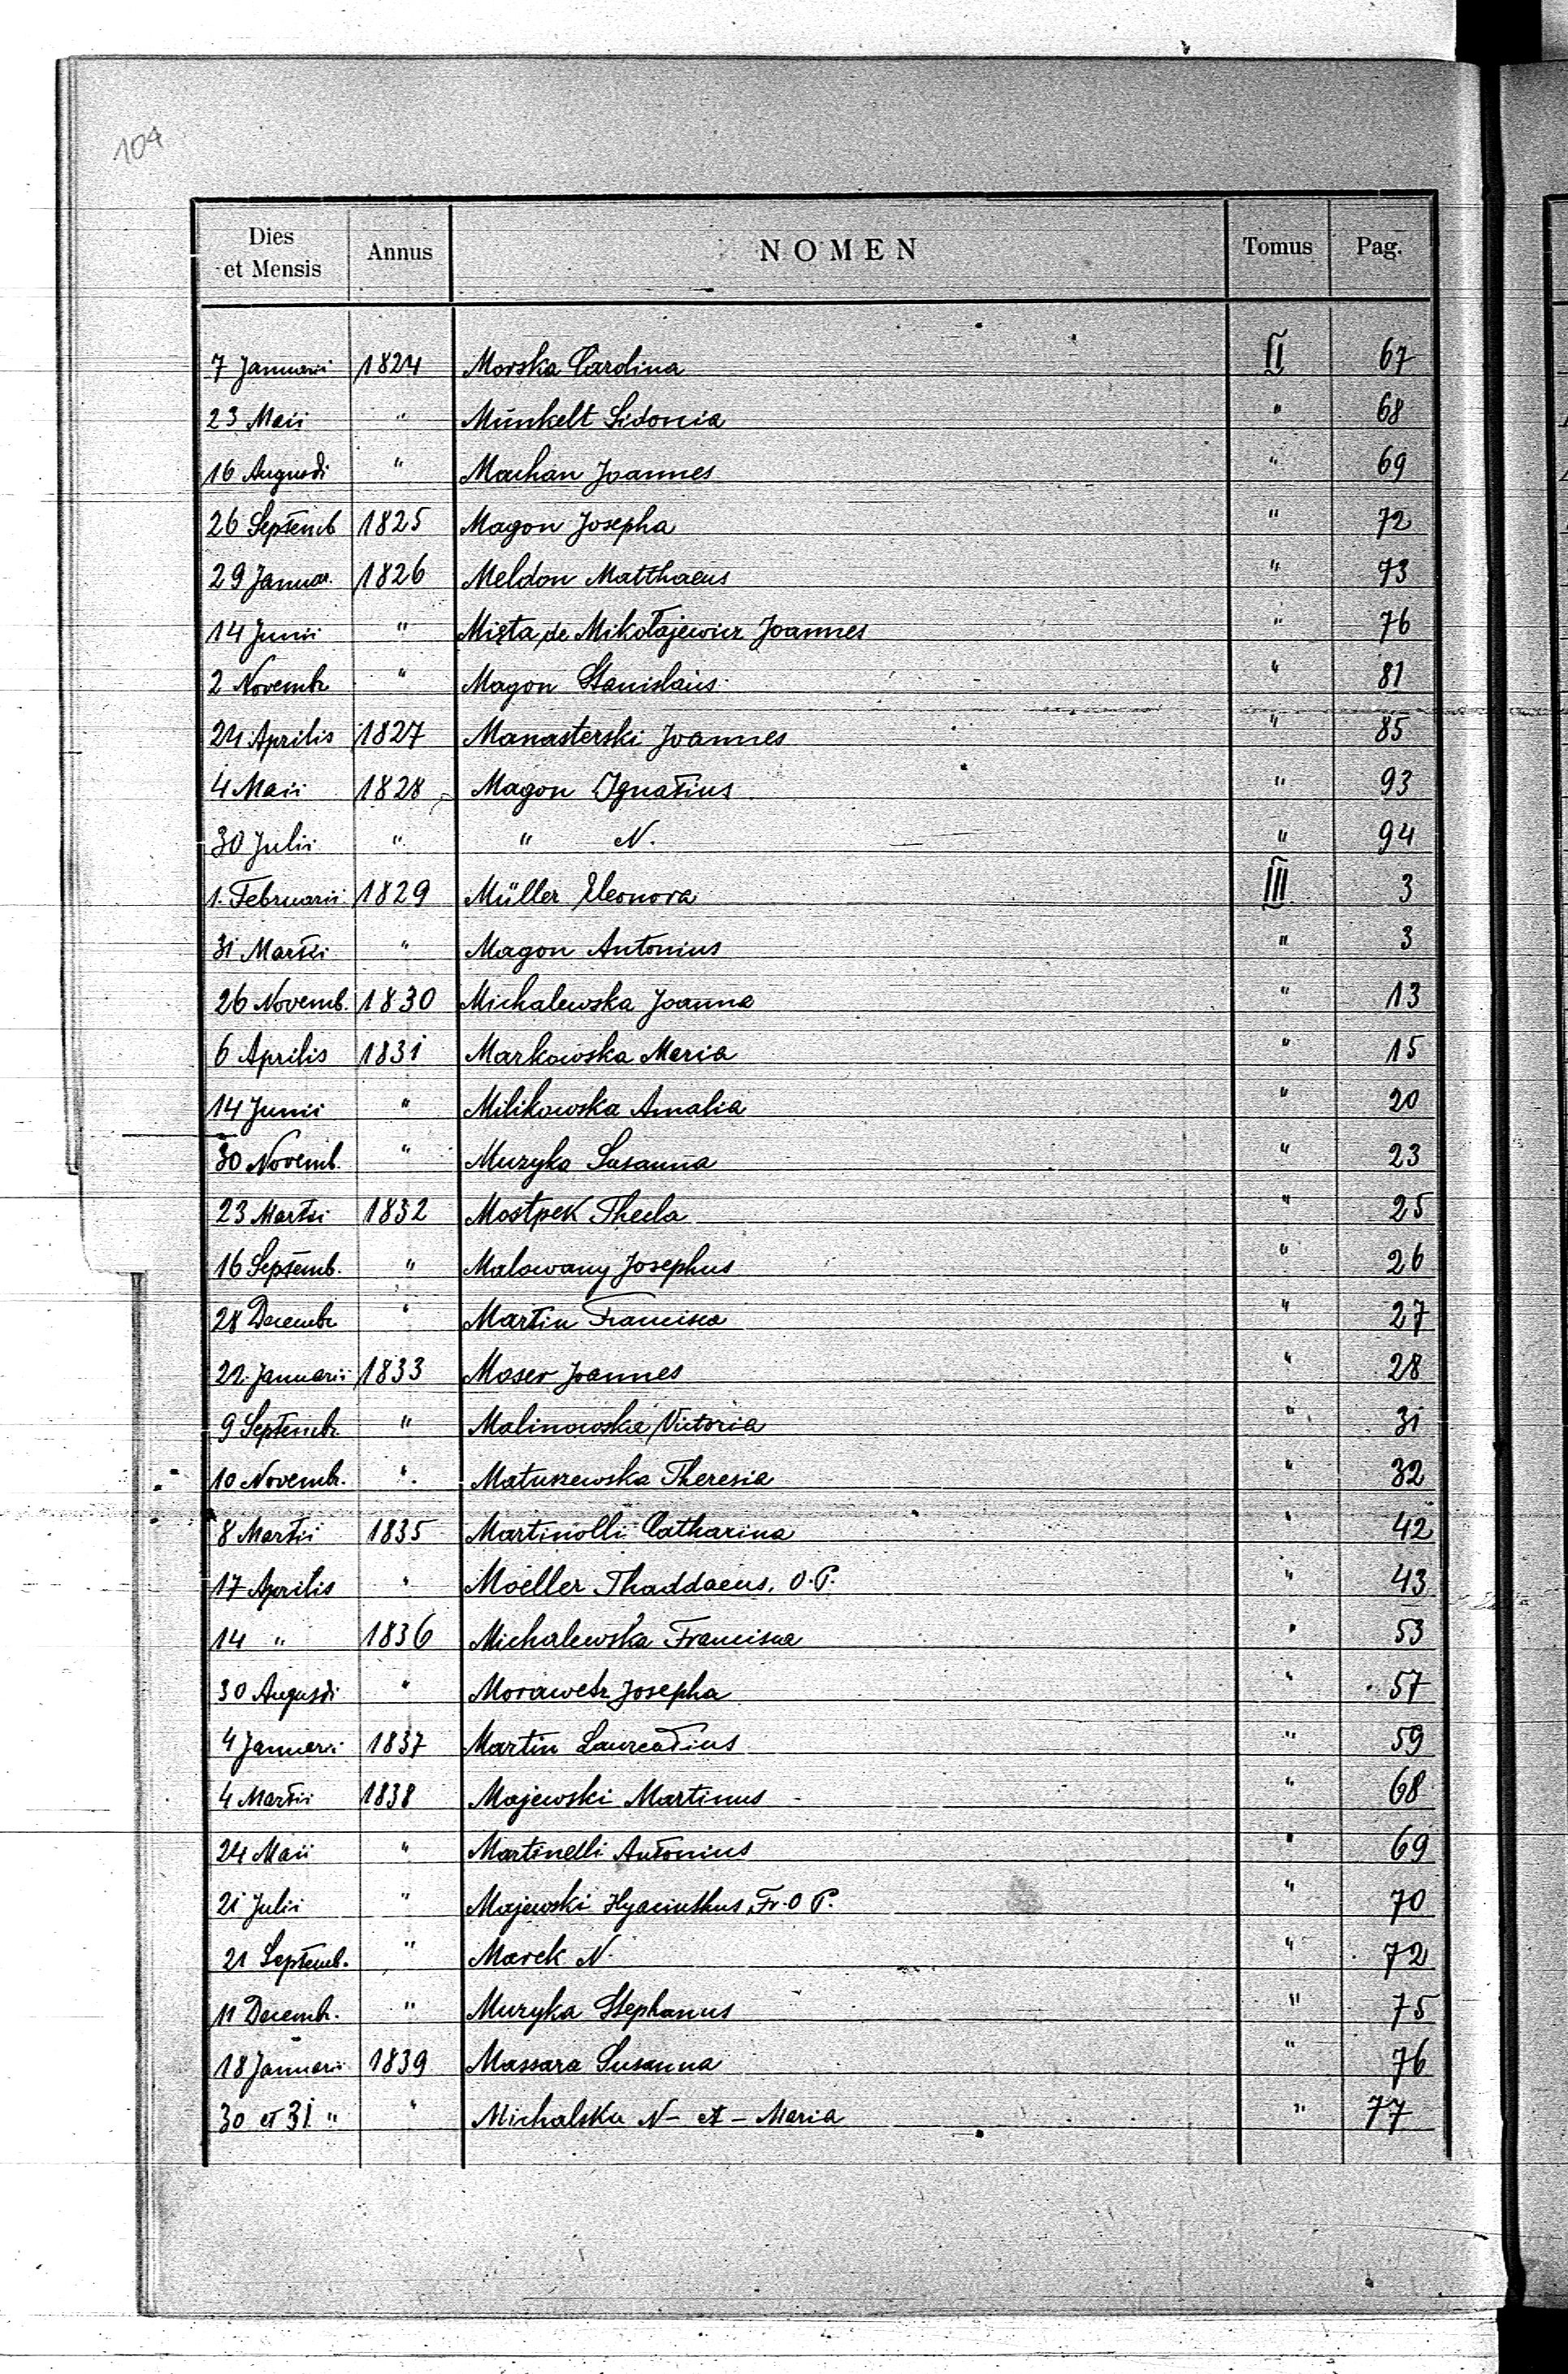 104
Dies et Mensis Annus NOMEN Tomus Pag.
7 Januarii 1824 Morska Carolina II 67
23 Maii " Munkelt Sidonia " 68
16 Augusti " Machan Joannes " 69
26 Septemb 1825 Magon Josepha " 72
29 Januar. 1826 Meldon Matthaeus " 73
14 Junii " Mięta, de Mikołajewicz Joannes " 76
2 Novembr " Magon Stanislaus " 81
24 Aprilis 1827 Manasterski Joannes " 85
4 Maii 1828 Magon Ignatius " 93
30 Julii " " N. " 94
1. Februarii 1829 Müller Eleonora III 3
31 Martii " Magon Antonius " 3
26 Novemb. 1830 Michalewska Joanna " 13
6 Aprilis 1831 Markowska Maria " 15
14 Junii " Milikowska Amalia " 20
30 Novemb. " Muzyka Susanna " 23
23 Martii 1832 Mostpek Thecla " 25
16 Septemb. " Malowany Josephus " 26
28 Decembr " Martin Francisca " 27
22. Januarii 1833 Moser Joannes " 28
9 Septembr. " Malinowska Victoria " 31
10 Novembr. " Matuszewska Theresia " 32
8 Martii 1835 Martinolli Catharina " 42
17 Aprilis " Moeller Thaddaeus, O.P. " 43
14 " 1836 Michalewska Francisca " 53
30 Augusti " Morawetz Josepha " 57
4 Januarii 1837 Martin Laureatius " 59
4 Martii 1838 Majewski Martinus " 68
24 Maii " Martinelli Antonius " 69
21 Julii " Majewski Hyacinthus, Fr. O P. " 70
21 Septemb. " Marek N " 72
11 Decembr. " Muzyka Stephanus " 75
18 Januarii 1839 Massara Susanna " 76
30 et 31 " " Michalska N - et - Maria " 77